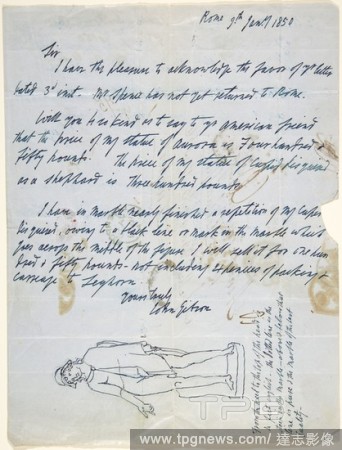 Rome 9th Jany 1850
Sir
I have the pleasure to acknowledge the favor of yr letter
dated 3d inst. Mr Spence has not yet returned to Rome.
Will you be so kind as to say to yr American friend
that the price of my statue of Aurora is Four hundred &
fifty pounds. The price of my statue of Cupid disguised
as a shepherd is three hundred pounds.
I have in marble nearly finished a repetition of my Cupid
disguised, owing to a black line or mark in the marble which
goes across the middle of the figure I will sell it for one hun
dred & fifty pounds - not including expenses of packing &
carriage to Leghorn.
Yours truly
John Gibson
TPG
www.tpgnews.com / 達志影像